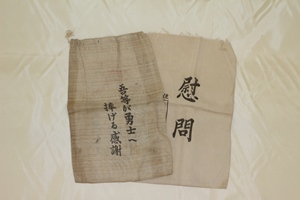 慰問
吾等が勇士へ
捧げる感謝